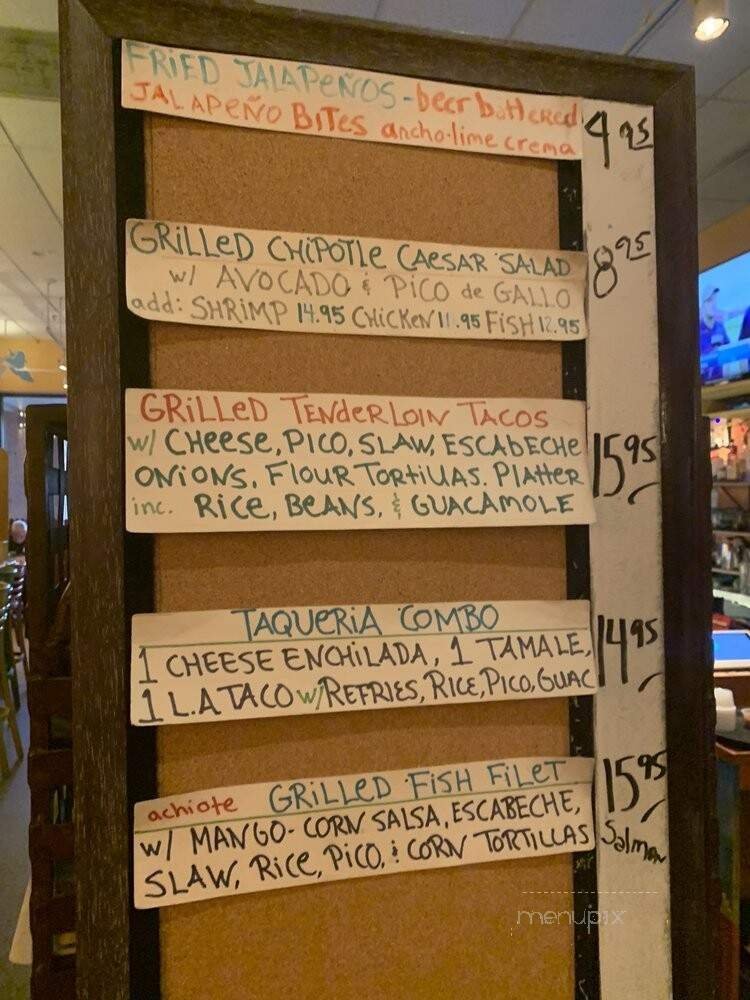 FRIED JALAPEÑOS - beer battered
JALAPEÑO BITES ancho-lime crema
4 95
GRILLED CHIPOTLE CAESAR SALAD
w/ AVOCADO & PICO de GALLO
add: SHRIMP 14.95 CHICKEN 11.95 FISH 12.95
8 95
GRILLED TENDERLOIN TACOS
w/ CHEESE, PICO, SLAW, ESCABECHE
ONIONS, FLOUR TORTILLAS. PLATTER
inc. RICE, BEANS, & GUACAMOLE
15 95
TAQUERIA COMBO
1 CHEESE ENCHILADA, 1 TAMALE,
1 L.A TACO w/ REFRIES, RICE, PICO, GUAC
14 95
achiote GRILLED FISH FILET
w/ MANGO-CORN SALSA, ESCABECHE,
SLAW, RICE, PICO, & CORN TORTILLAS
15 95
Salmon
menupix